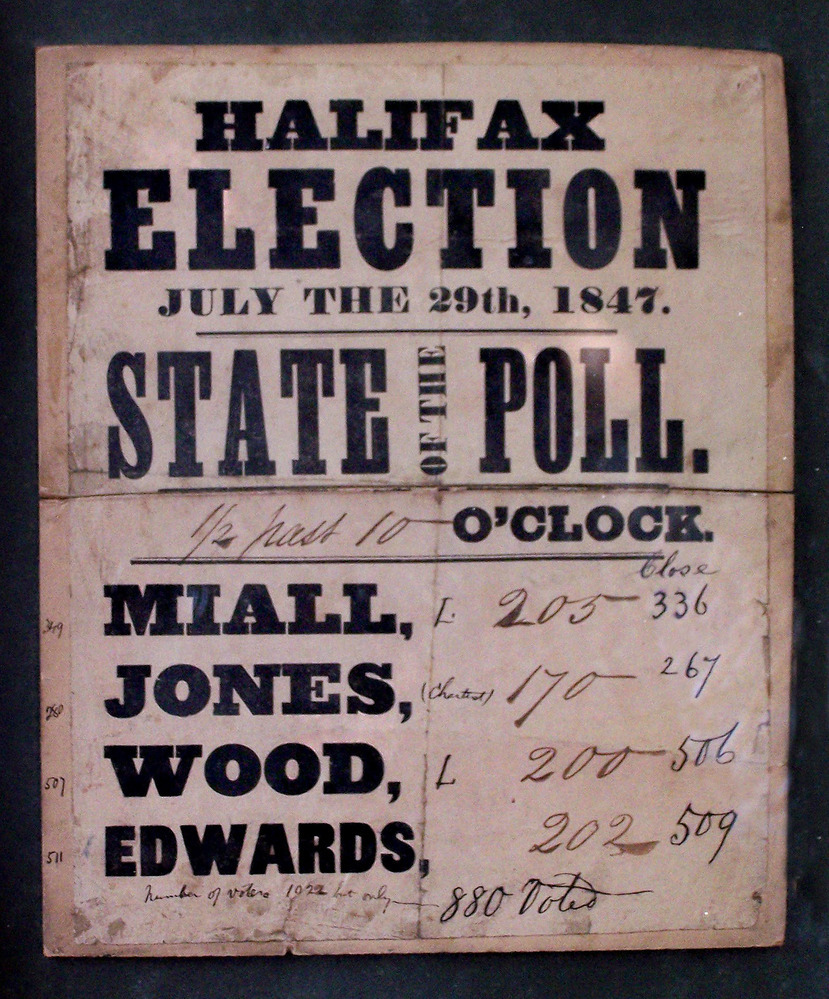 HALIFAX
ELECTION
JULY THE 29th, 1847.
STATE OF THE POLL.
1/2 past 10 O'CLOCK.
Close
349 MIALL, L 205 336
280 JONES, (Chartist) 170 267
507 WOOD, L 200 506
511 EDWARDS, 202 509
Number of voters 1022 but only 880 Voted